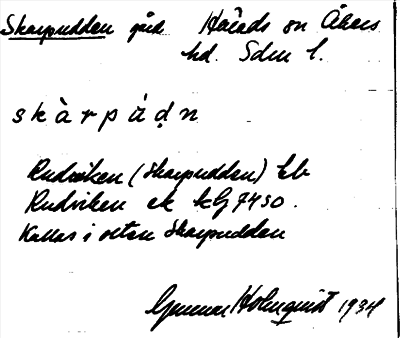 Skarpudden gård Härads sn Åkers
hd. Sdm l.
skàrpúḍn
Rudviken (Skarpudden) Eb
Rudviken ek kG 7450.
Kallas i orten Skarpudden
Gunnar Holmquist 1934